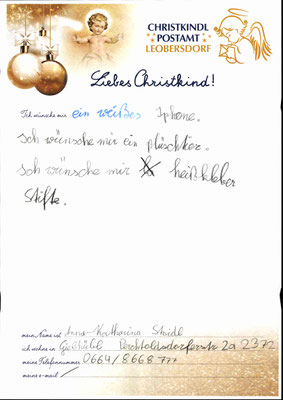 CHRISTKINDL
POSTAMT
LEOBERSDORF
Liebes Christkind!
Ich wünsche mir ein weißes Iphone.
Ich wünsche mir ein plüschtier.
Ich wünsche mir heißkleber
Stifte.
mein Name ist Anna-Katharina
ich wohne in Gießhübl Perchtoldsdorferstr 2a 2372
meine Telefonnummer 0664/8668777
meine e-mail